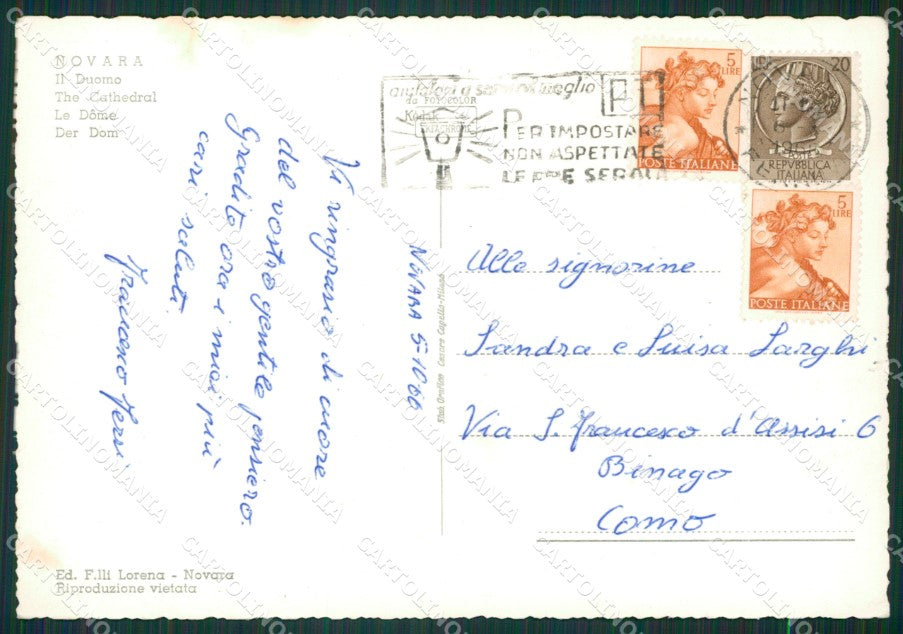 NOVARA
Il Duomo
The Cathedral
Le Dôme
Der Dom
aiutateci a servirvi meglio
da FOTOCOLOR
Kodak
EKTACHROME
PT
PER IMPOSTARE
NON ASPETTATE
LE ORE SERALI
5
LIRE
POSTE ITALIANE
20
POSTE
REPVBBLICA
ITALIANA
5
LIRE
POSTE ITALIANE
Vi ringrazio di cuore
del vostro gentile pensiero.
Gradite ora i miei più
cari saluti
Francesco
NOVARA 5-10-66
Stab. Grafico Cesare Capello - Milano
Alle signorine
Sandra e Luisa Larghi
Via S. Francesco d'Assisi 6
Binago
Como
Ed. F.lli Lorena - Novara
Riproduzione vietata
CARTOLINOMANIA